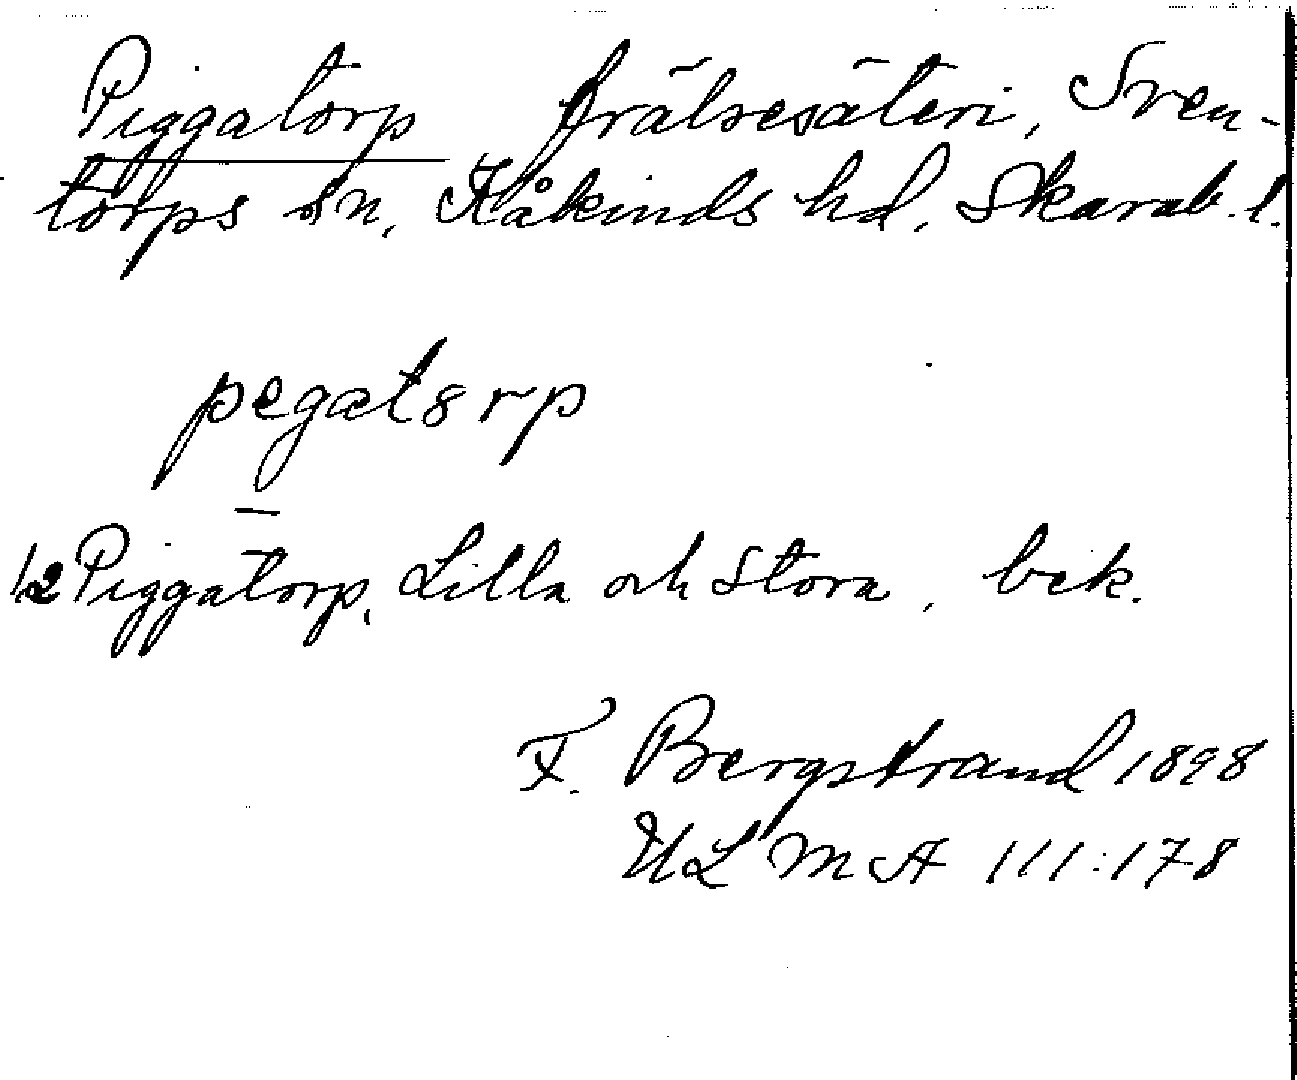 Piggatorp frälsesäteri, Sven-
torps sn, Kåkinds hd, Skarab. l.
pegats rp
1/2 Piggatorp, Lilla och Stora, bek.
F. Bergstrand 1898
ULMA 111:178